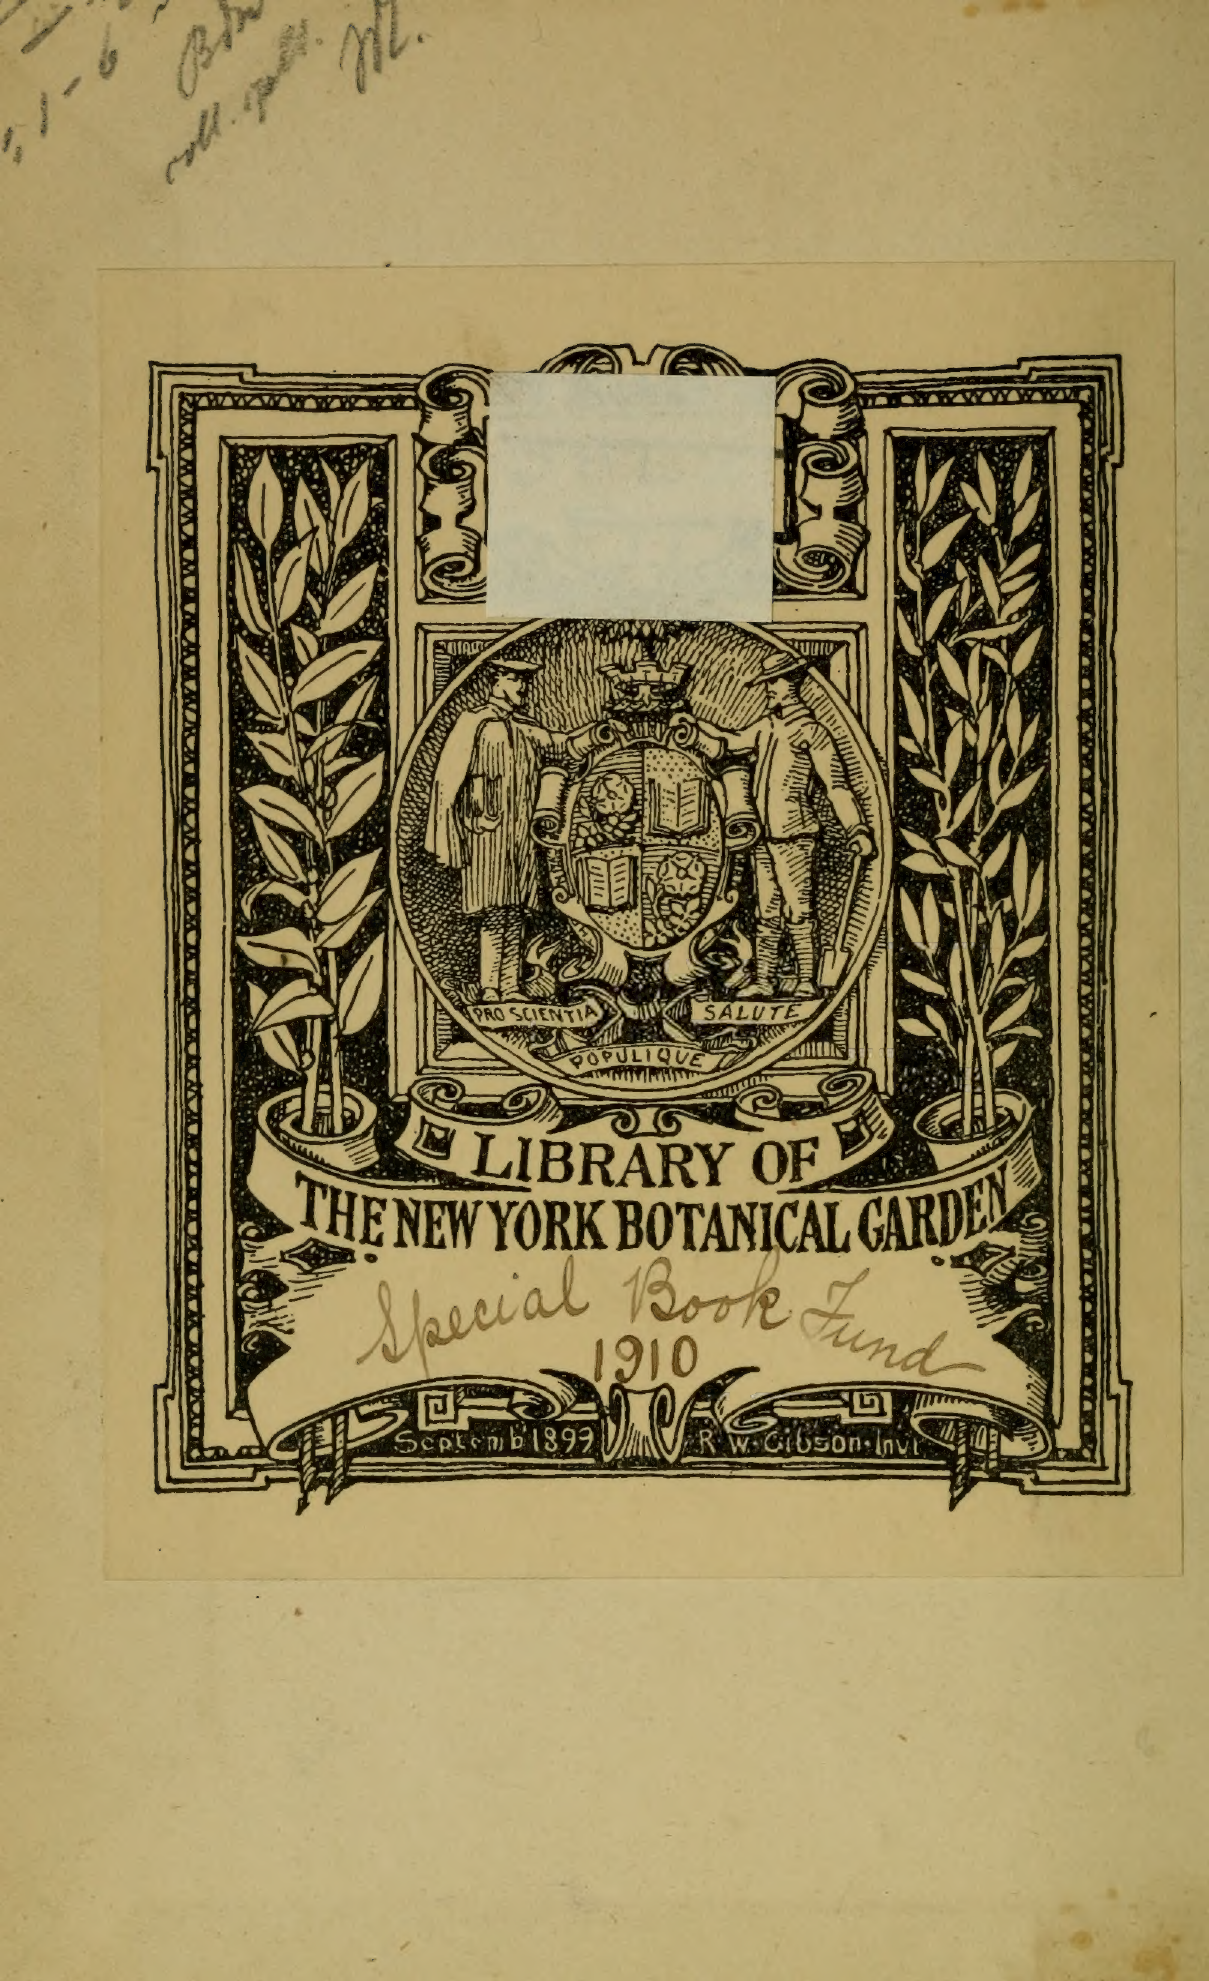 1-6
PRO SCIENTIA SALUTE
POPULIQUE
LIBRARY OF
THE NEW YORK BOTANICAL GARDEN
Special Book Fund
1910
Septemb 1899 R W. Gibson. Invt